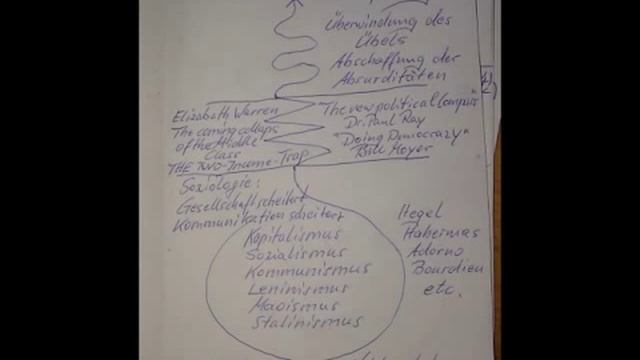 Überwindung des
Übels
Abschaffung der
Absurditäten
Elizabeth Warren
The coming collaps
of the Middle
Class
THE TWO-Income-Trap
The new political Compass
Dr. Paul Ray
"Doing Democracy"
Bill Moyer
Soziologie:
Gesellschaft scheitert
Kommunikation scheitert
Kapitalismus
Sozialismus
Kommunismus
Leninismus
Maoismus
Stalinismus
Hegel
Habermas
Adorno
Bourdieu
etc.